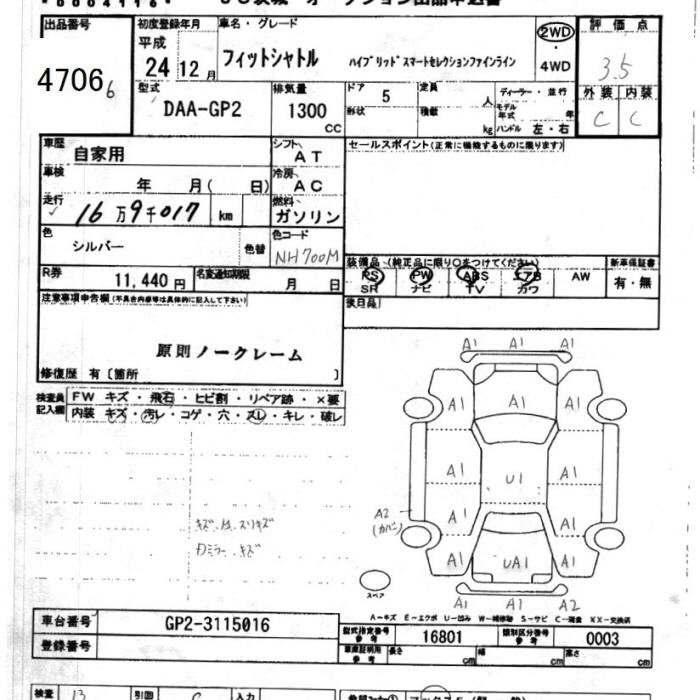 出品番号
47066
初度登録年月
平成
24 12 月
車名・グレード
フィットシャトル
ハイブリッドスマートセレクションファインライン
2WD
4WD
評価点
3.5
外装 内装
C C
型式
DAA-GP2
排気量
1300
CC
ドア 5
形状
定員 人
積載 kg
ディーラー・並行
モデル年式 年
ハンドル 左・右
車歴
自家用
シフト
AT
車検
年 月( 日)
冷房
AC
走行
16万9千017 km
燃料
ガソリン
色
シルバー
色替
色コード
NH700M
R券
11,440 円
名変通知期限
月 日
セールスポイント(正常に機能するものに限ります)
装備品 (純正品に限り○をつけてください)
新車保証書
PS PW ABS エアB AW
SR ナビ TV カワ
有・無
後日品
注意事項申告欄(不具合内容等は具体的に記入して下さい)
原則ノークレーム
修復歴 有〔箇所 〕
検査員記入欄
FW キズ・飛石・ヒビ割・リペア跡・×要
内装 キズ・汚レ・コゲ・穴・スレ・キレ・破レ
スリキズ
Dミラー キズ
A1 A1
A1 A1 A1
A1 U1 A1
A1 A1
A2
(カバン)
A1 UA1 A1
A1 A1 A2
スペア
A-キズ E-エクボ U-凹み W-補修跡 S-サビ C-腐食 XX-交換済
車台番号
GP2-3115016
登録番号
型式指定番号
参考
16801
類別区分番号
参考
0003
車庫証明用
参考
長さ cm
幅 cm
高さ cm
検査 13
引回 C
入力